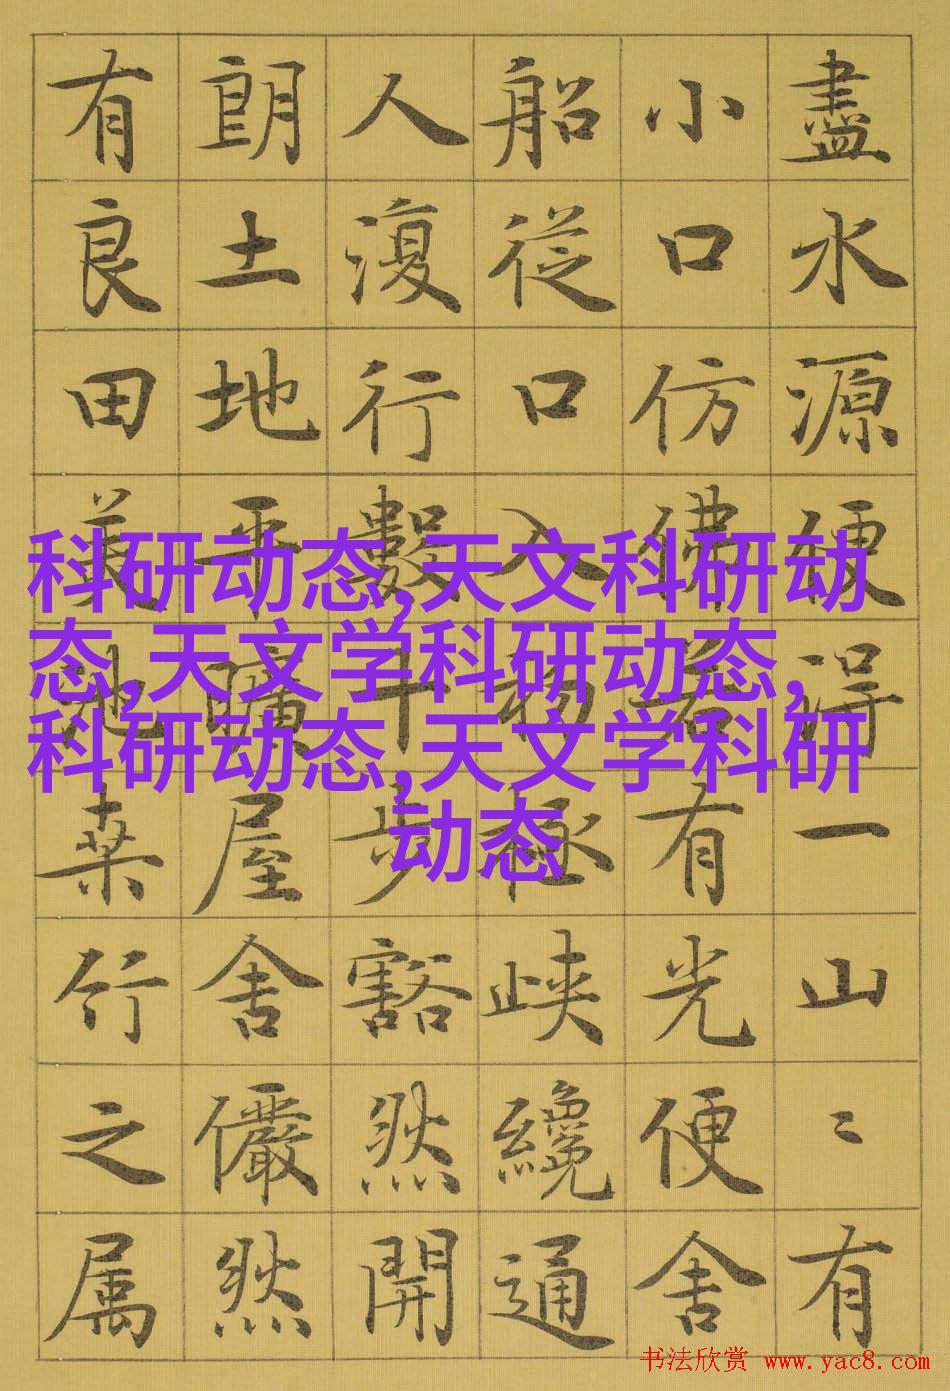 盡水源便得一山〻有
小口仿佛若有光便舍
船從口入初極峽纔通
人復行數十步豁然開
朗土地平曠屋舍儼然
有良田美池桑竹之属
科研动态,天文科研动
态,天文学科研动态,
科研动态,天文学科研
动态
书法欣赏 www.yac8.com